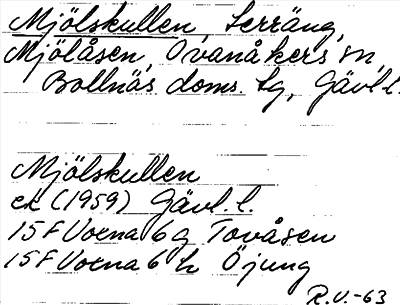 Mjölskullen, Terräng,
Mjölåsen, Ovanåkers sn,
Bollnäs doms. tg, Gävl.l.
Mjölskullen
ek (1959) Gävl.l.
15F Voxna 6g Tovåsen
15F Voxna 6h Öjung
R.U-63